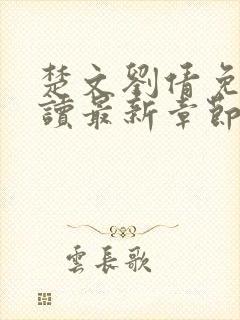 楚文劉倩免
讀最新章節
雲長歌